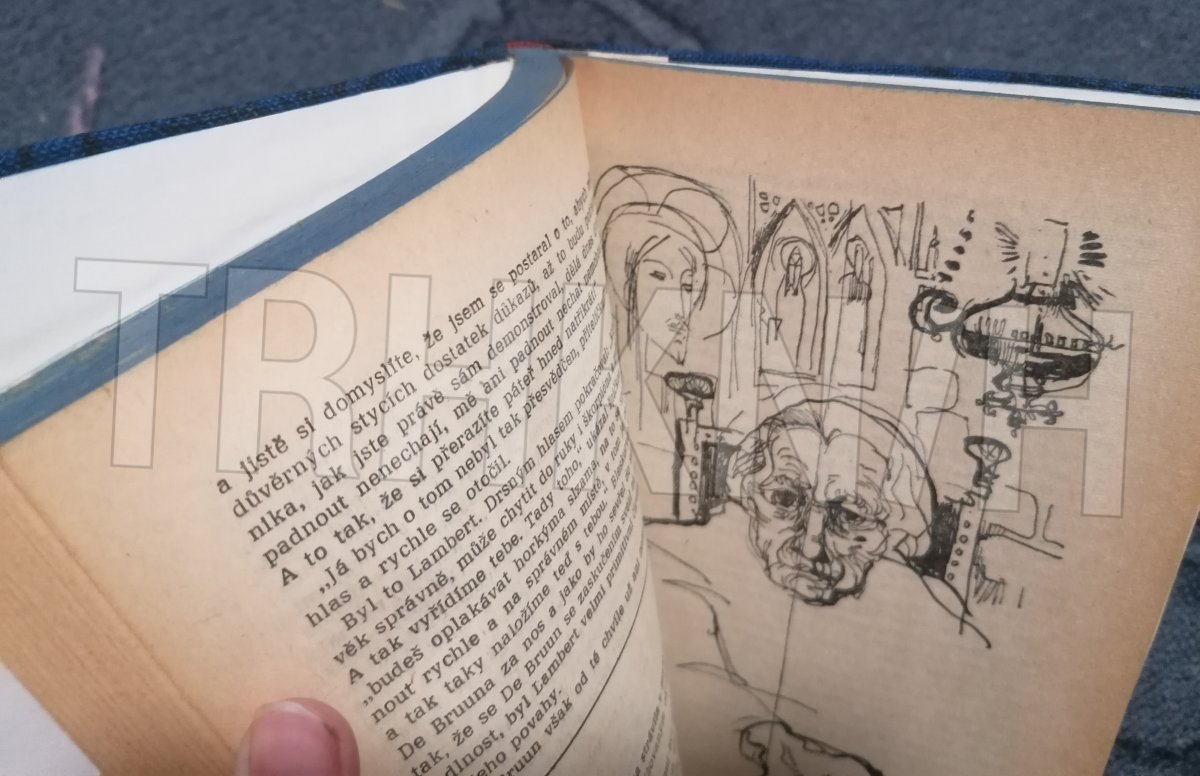 a jistě si domyslíte, že jsem se postaral o to, abych
důvěrných stycích dostatek důkazů, až to budu
níka, jak jste právě sám demonstroval, dělá dnes
padnout nenechají, mě ani padnout nechat nesmí
A to tak, že si přerazíte páteř hned natřikrát.
„Já bych o tom nebyl tak přesvědčen, příteli,
hlas a rychle se otočil.
Byl to Lambert. Drsným hlasem pokračoval:
věk správně, může chytit do ruky i škorpióna
A tak vyřídíme tebe. Tady toho,“ ukázal
„budeš oplakávat horkýma slzama, na to
nout rychle a na správném místě, v
a tak taky naložíme teď s tebou i
De Bruuna za nos a jako by ho
tak, že se De Bruun se zaskučením
dlnost, byl Lambert velmi primitivní
jeho povahy.
Bruun však od té chvíle už
TRHKNIH